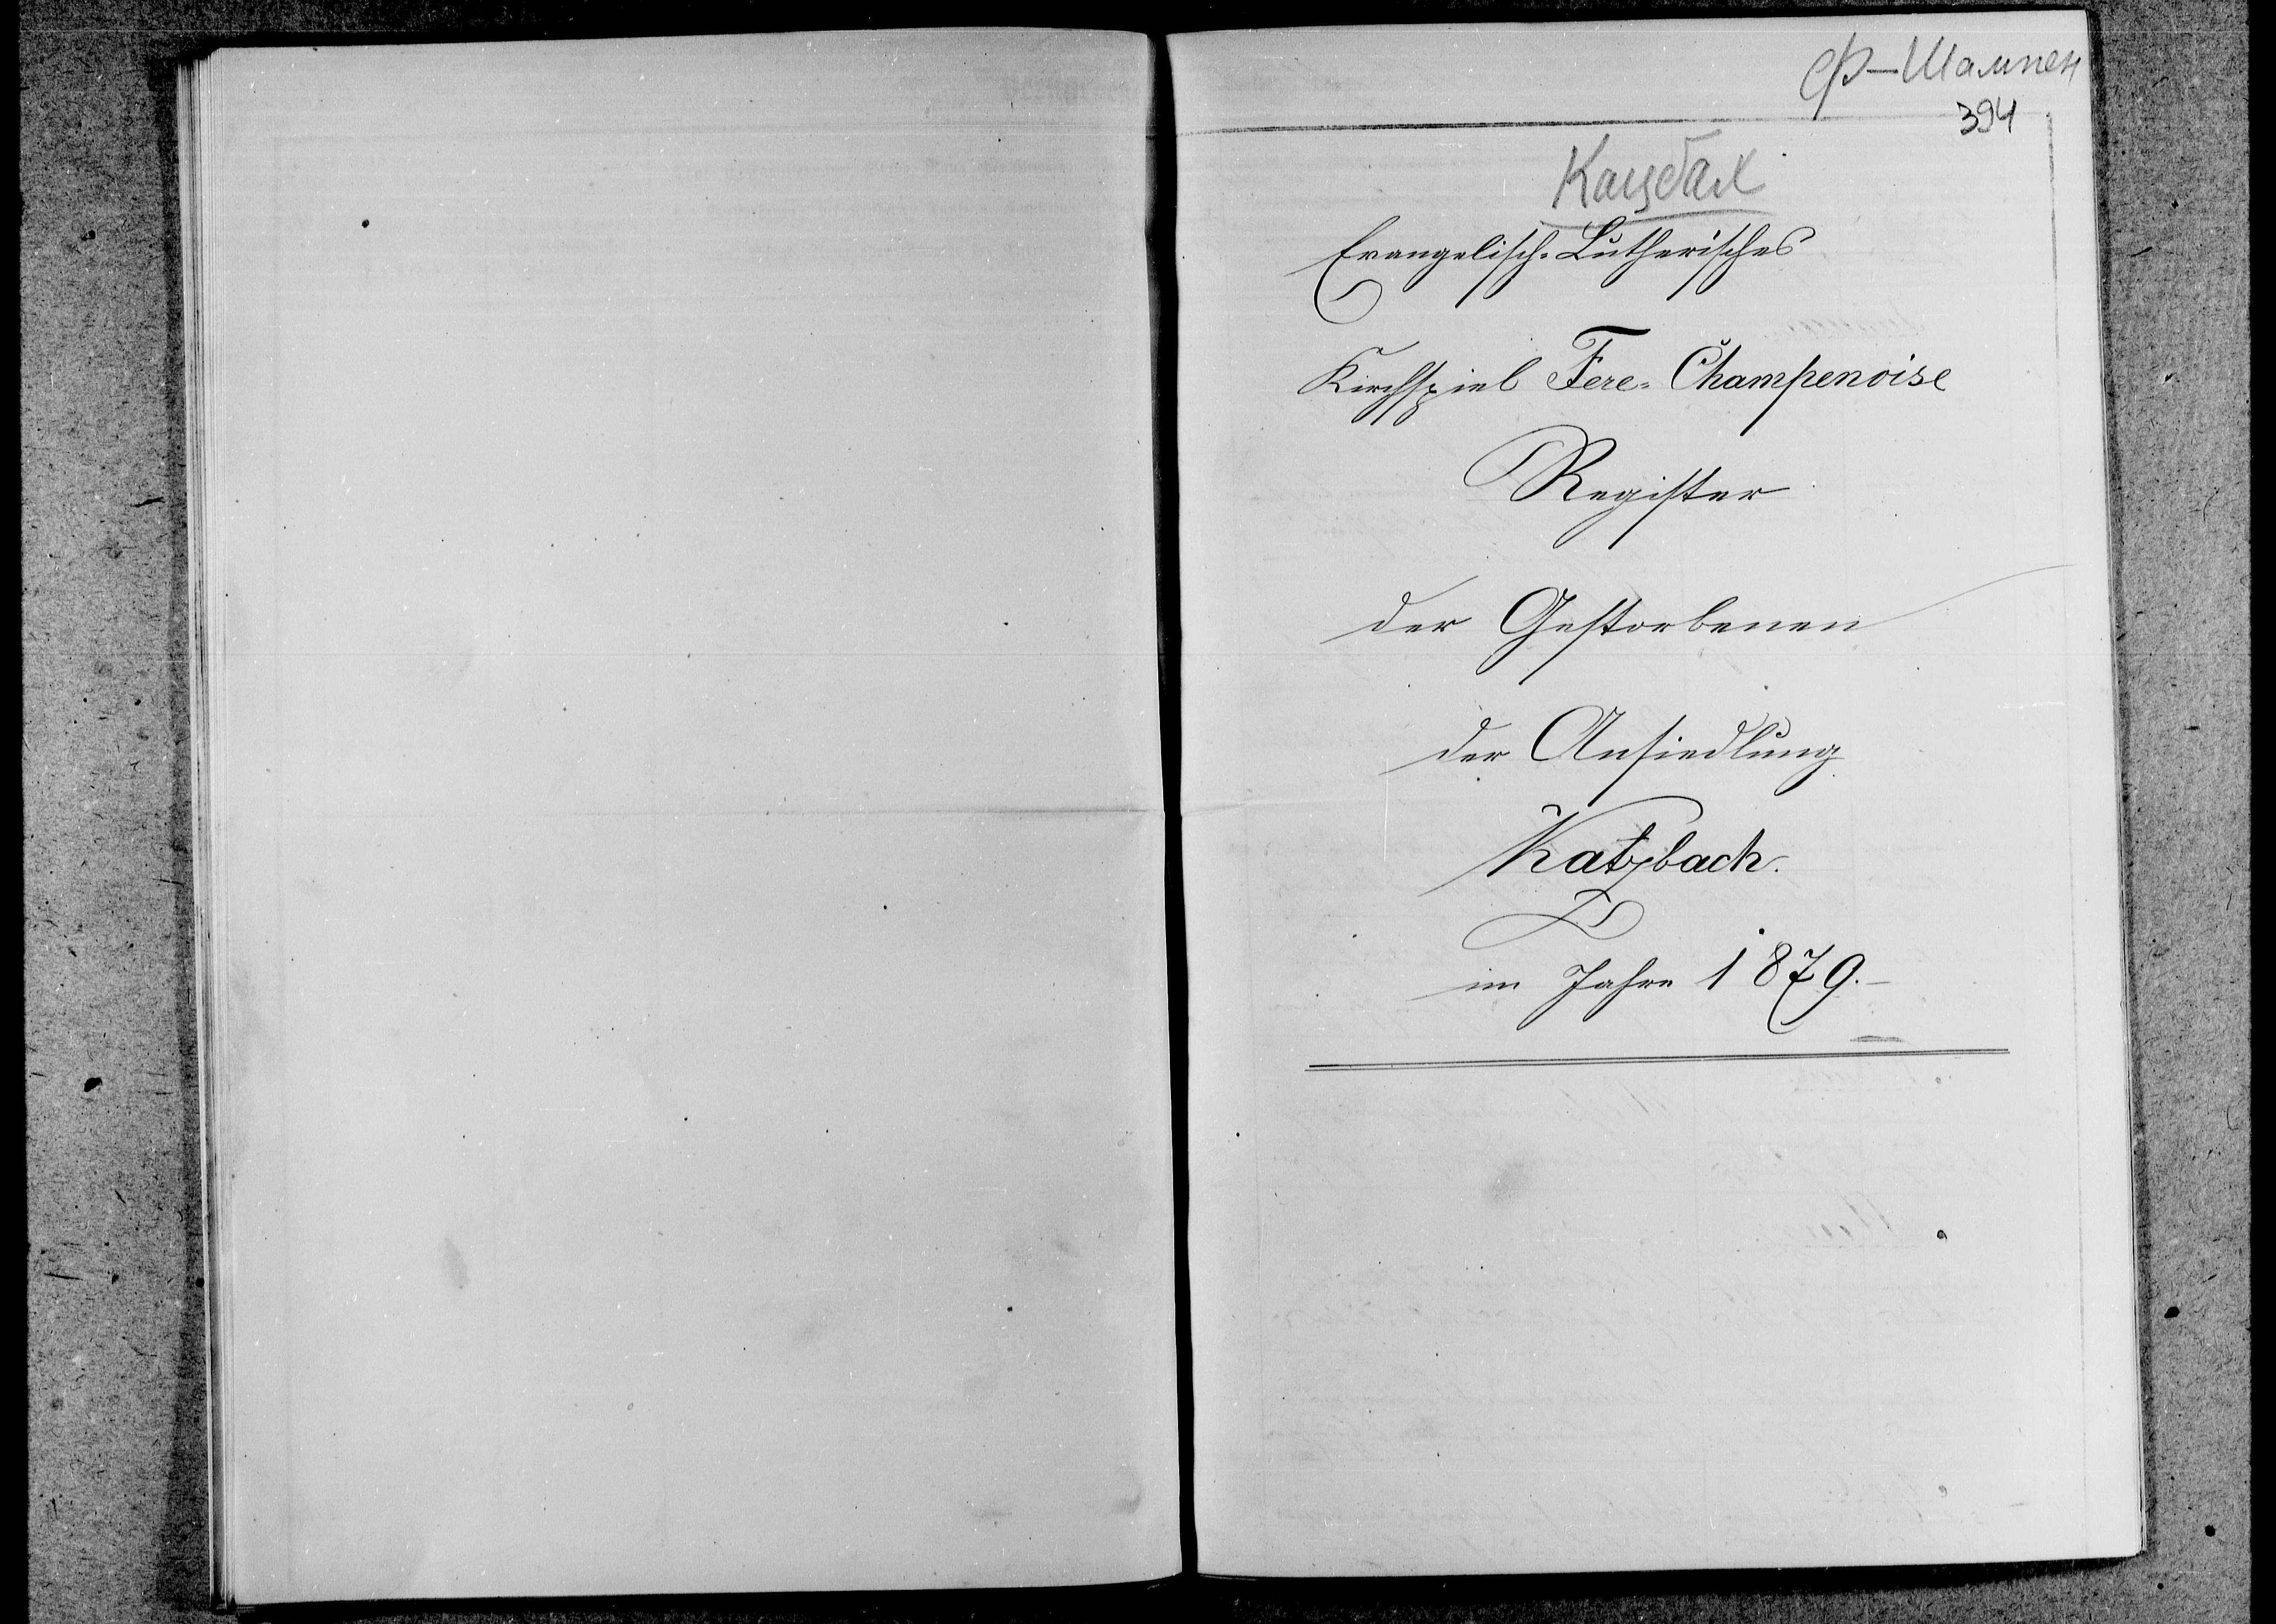 Ф-Шампен
394
Кацбах
Evangelisch-Lutherisches
Kirchspiel Fere-Champenoise
Register
der Gestorbenen
der Ansiedlung
Katzbach.
im Jahre 1879.